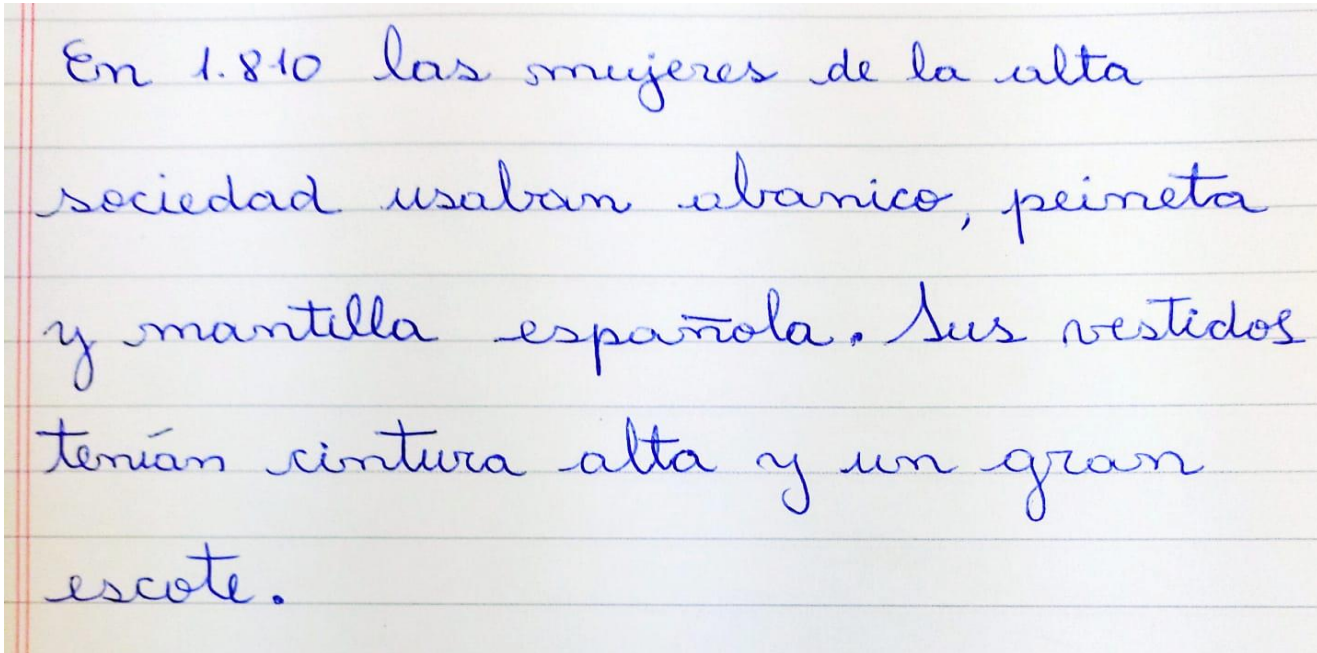 En 1.810 las mujeres de la alta
sociedad usaban abanico, peineta
y mantilla española. Sus vestidos
tenían cintura alta y un gran
escote.